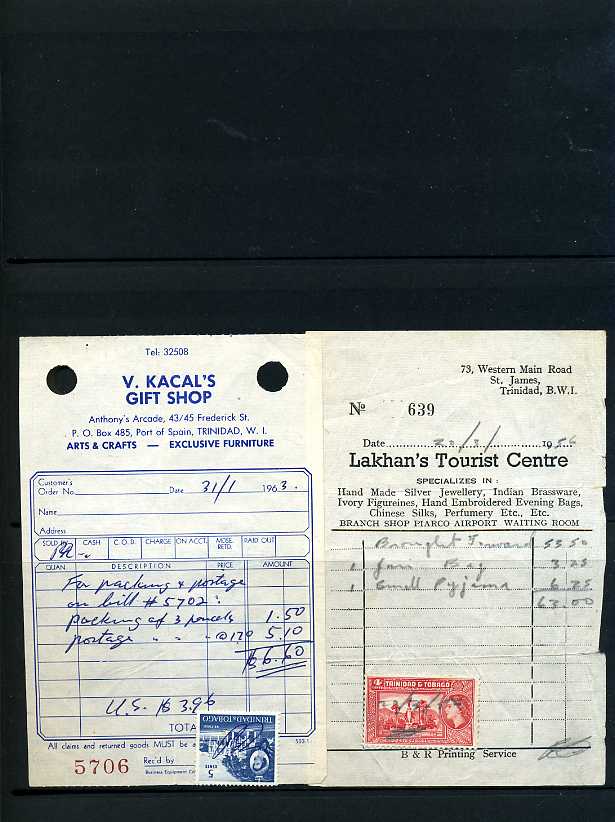 Tel: 32508
V. KACAL'S
GIFT SHOP
Anthony's Arcade, 43/45 Frederick St.
P. O. Box 485, Port of Spain, TRINIDAD, W. I.
ARTS & CRAFTS — EXCLUSIVE FURNITURE
Customer's
Order No. Date 31/1 1963.
Name
Address
SOLD BY CASH C.O.D. CHARGE ON ACCT. MDSE. RETD. PAID OUT
QUAN. DESCRIPTION PRICE AMOUNT
For packing & postage
on bill # 5702:
packing of 3 parcels 1.50
postage " " @ 170 5.10
$6.60
U.S. $3.96
TOTA
All claims and returned goods MUST be a
553-1
5706 Rec'd by
Business Equipment
TRINIDAD & TOBAGO
5 CENTS
73, Western Main Road
St. James,
Trinidad, B.W.I.
No 639
Date 1956
Lakhan's Tourist Centre
SPECIALIZES IN :
Hand Made Silver Jewellery, Indian Brassware,
Ivory Figureines, Hand Embroidered Evening Bags,
Chinese Silks, Perfumery Etc., Etc.
BRANCH SHOP PIARCO AIRPORT WAITING ROOM
Brought Forward 53.50
1 Bag 3.25
1 Small Pyjama 6.25
63.00
TRINIDAD & TOBAGO
B & R Printing Service